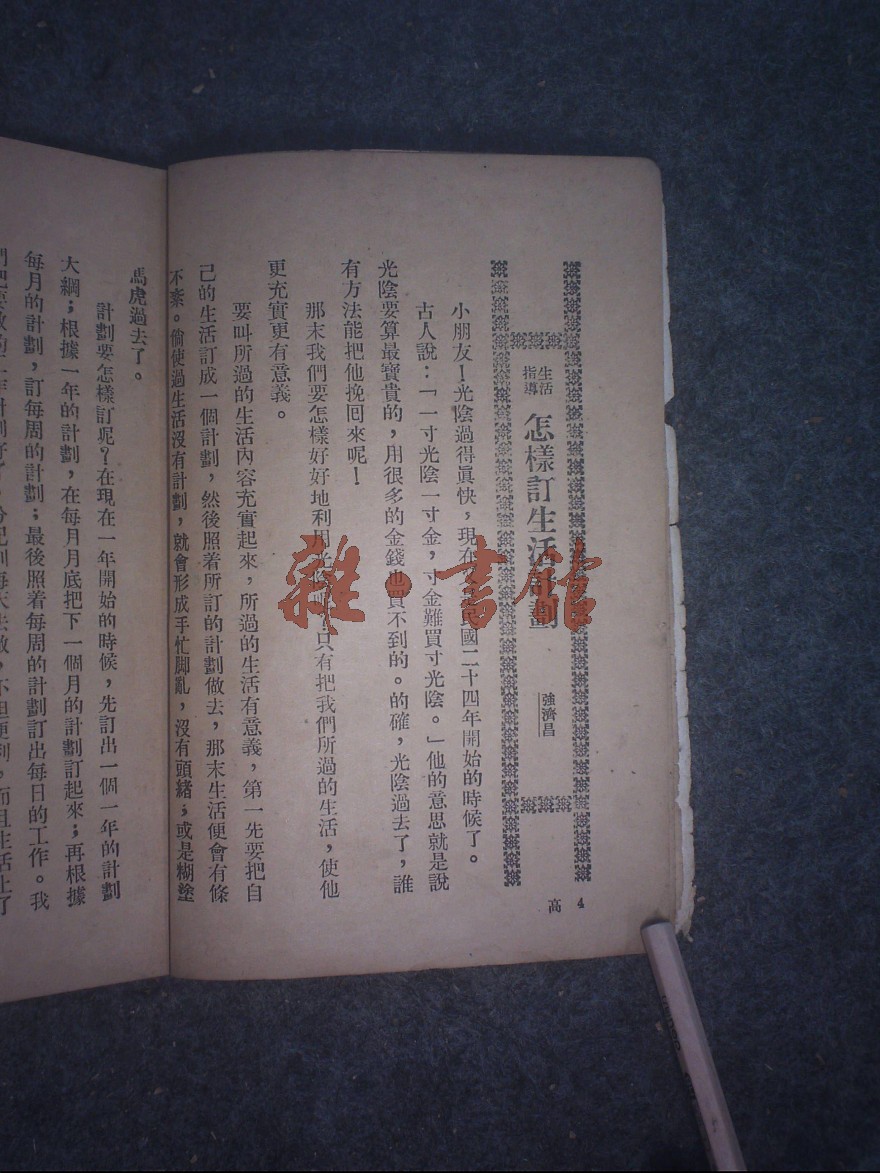 生活
指導
怎樣訂生活計劃
強濟昌
小朋友！光陰過得眞快，現在民國二十四年開始的時候了。
古人說：「一寸光陰一寸金，寸金難買寸光陰。」他的意思就是說
光陰要算最寶貴的，用很多的金錢也買不到的。的確，光陰過去了，誰
有方法能把他挽回來呢！
那末我們要怎樣好好地利用只有把我們所過的生活，使他
更充實更有意義。
要叫所過的生活內容充實起來，所過的生活有意義，第一先要把自
己的生活訂成一個計劃，然後照着所訂的計劃做去，那末生活便會有條
不紊。倘使過生活沒有計劃，就會形成手忙脚亂，沒有頭緒；或是糊塗
馬虎過去了。
計劃要怎樣訂呢？在現在一年開始的時候，先訂出一個一年的計劃
大綱；根據一年的計劃，在每月月底把下一個月的計劃訂起來；再根據
每月的計劃，訂每周的計劃；最後照着每周的計劃訂出每日的工作。我
高 4
雜·書館